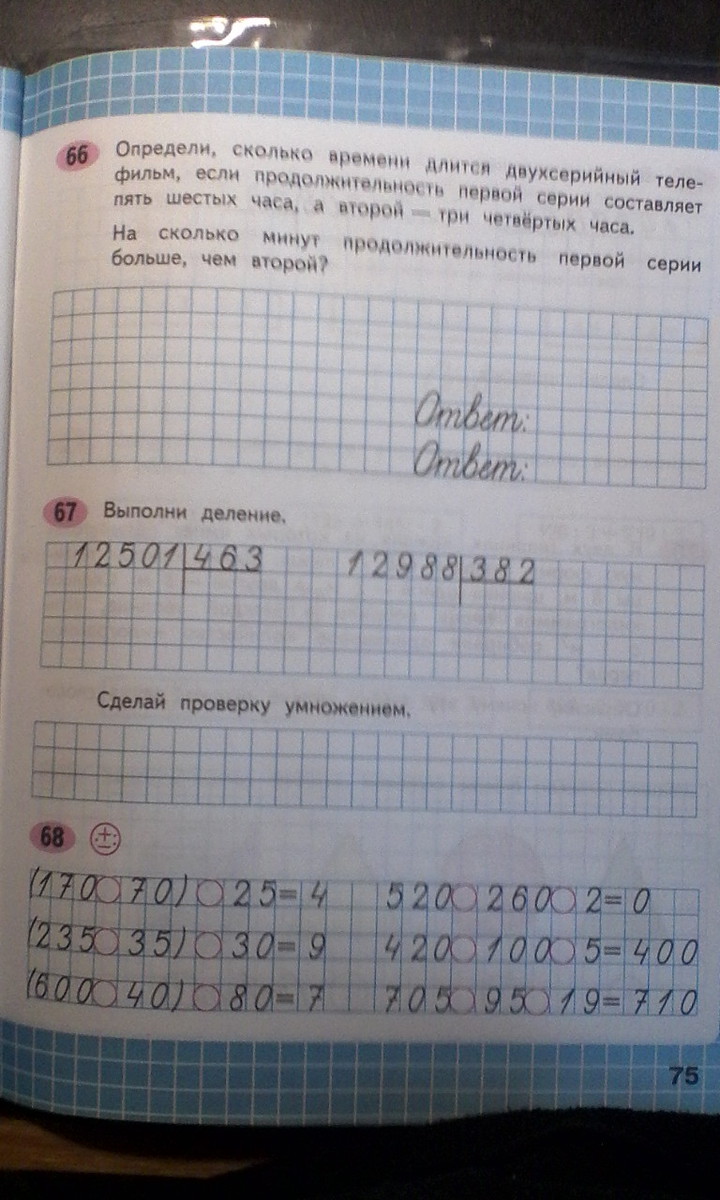 66 Определи, сколько времени длится двухсерийный теле-
фильм, если продолжительность первой серии составляет
пять шестых часа, а второй — три четвёртых часа.
На сколько минут продолжительность первой серии
больше, чем второй?
Ответ:
Ответ:
67 Выполни деление.
12501 463 12988 382
Сделай проверку умножением.
68 + − · :
(170○70)○25=4 520○260○2=0
(235○35)○30=9 420○100○5=400
(600○40)○80=7 705○95○19=710
75